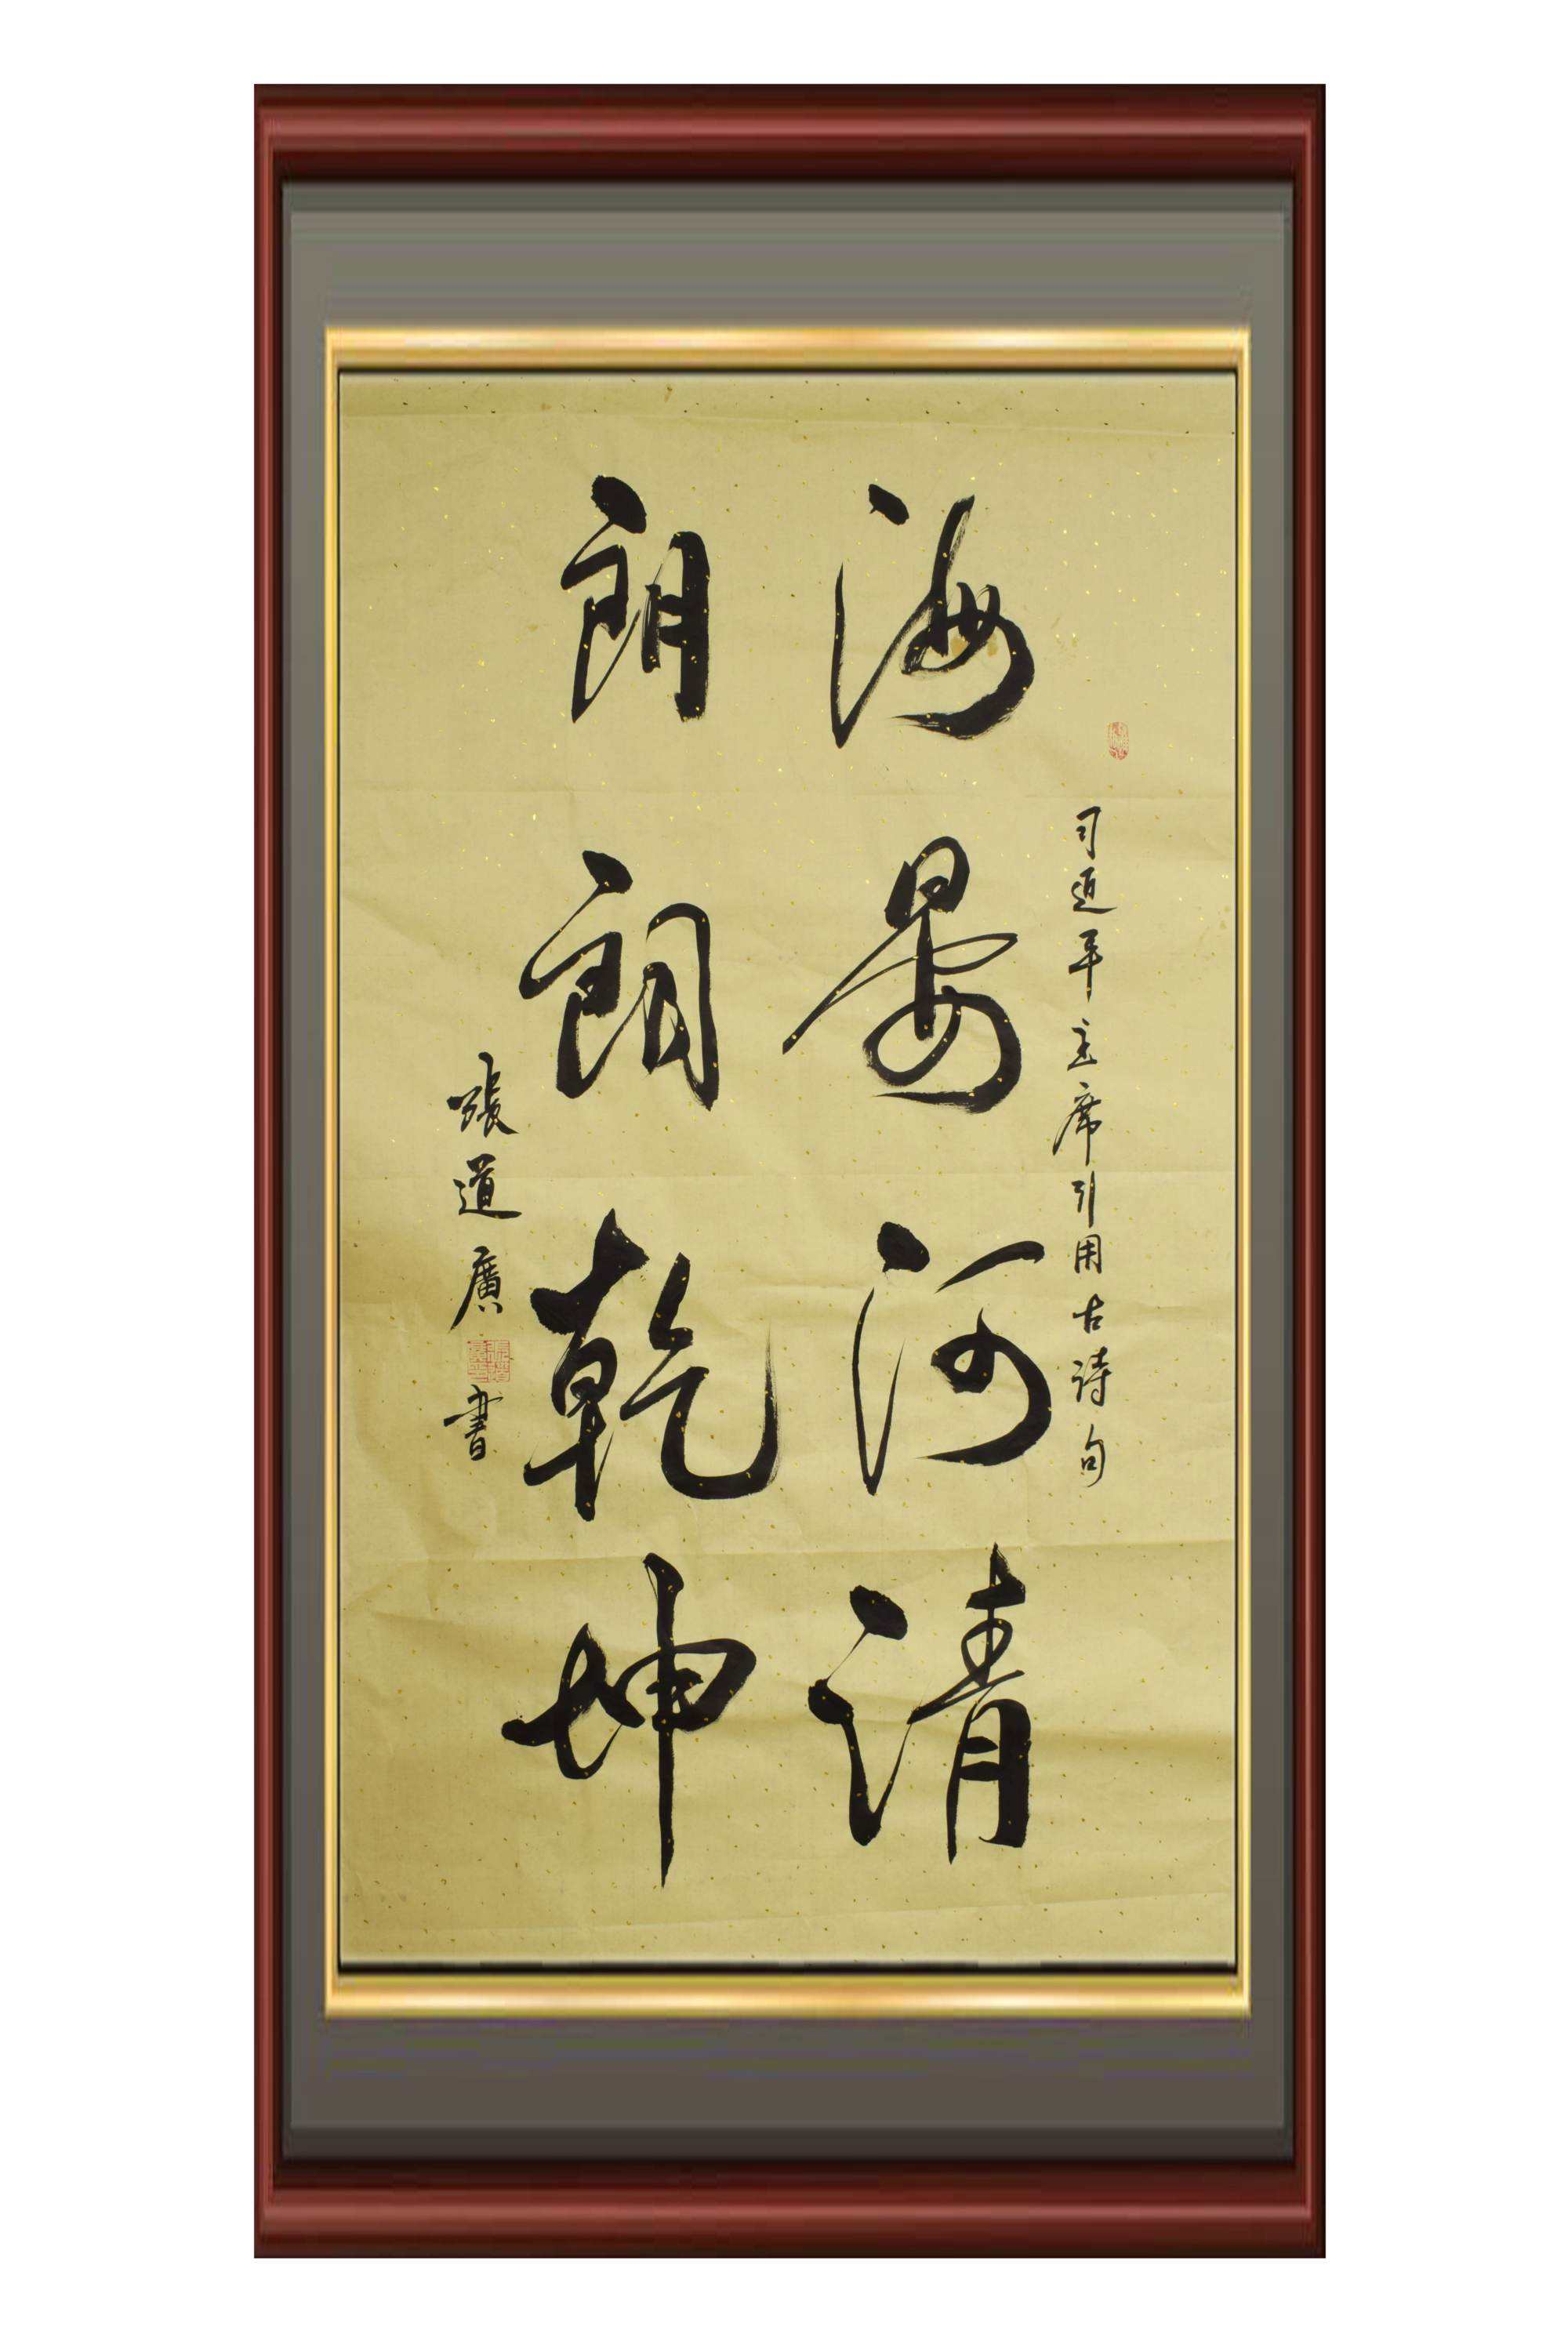 习近平主席引用古诗句
海晏河清
朗朗乾坤
張道廣書